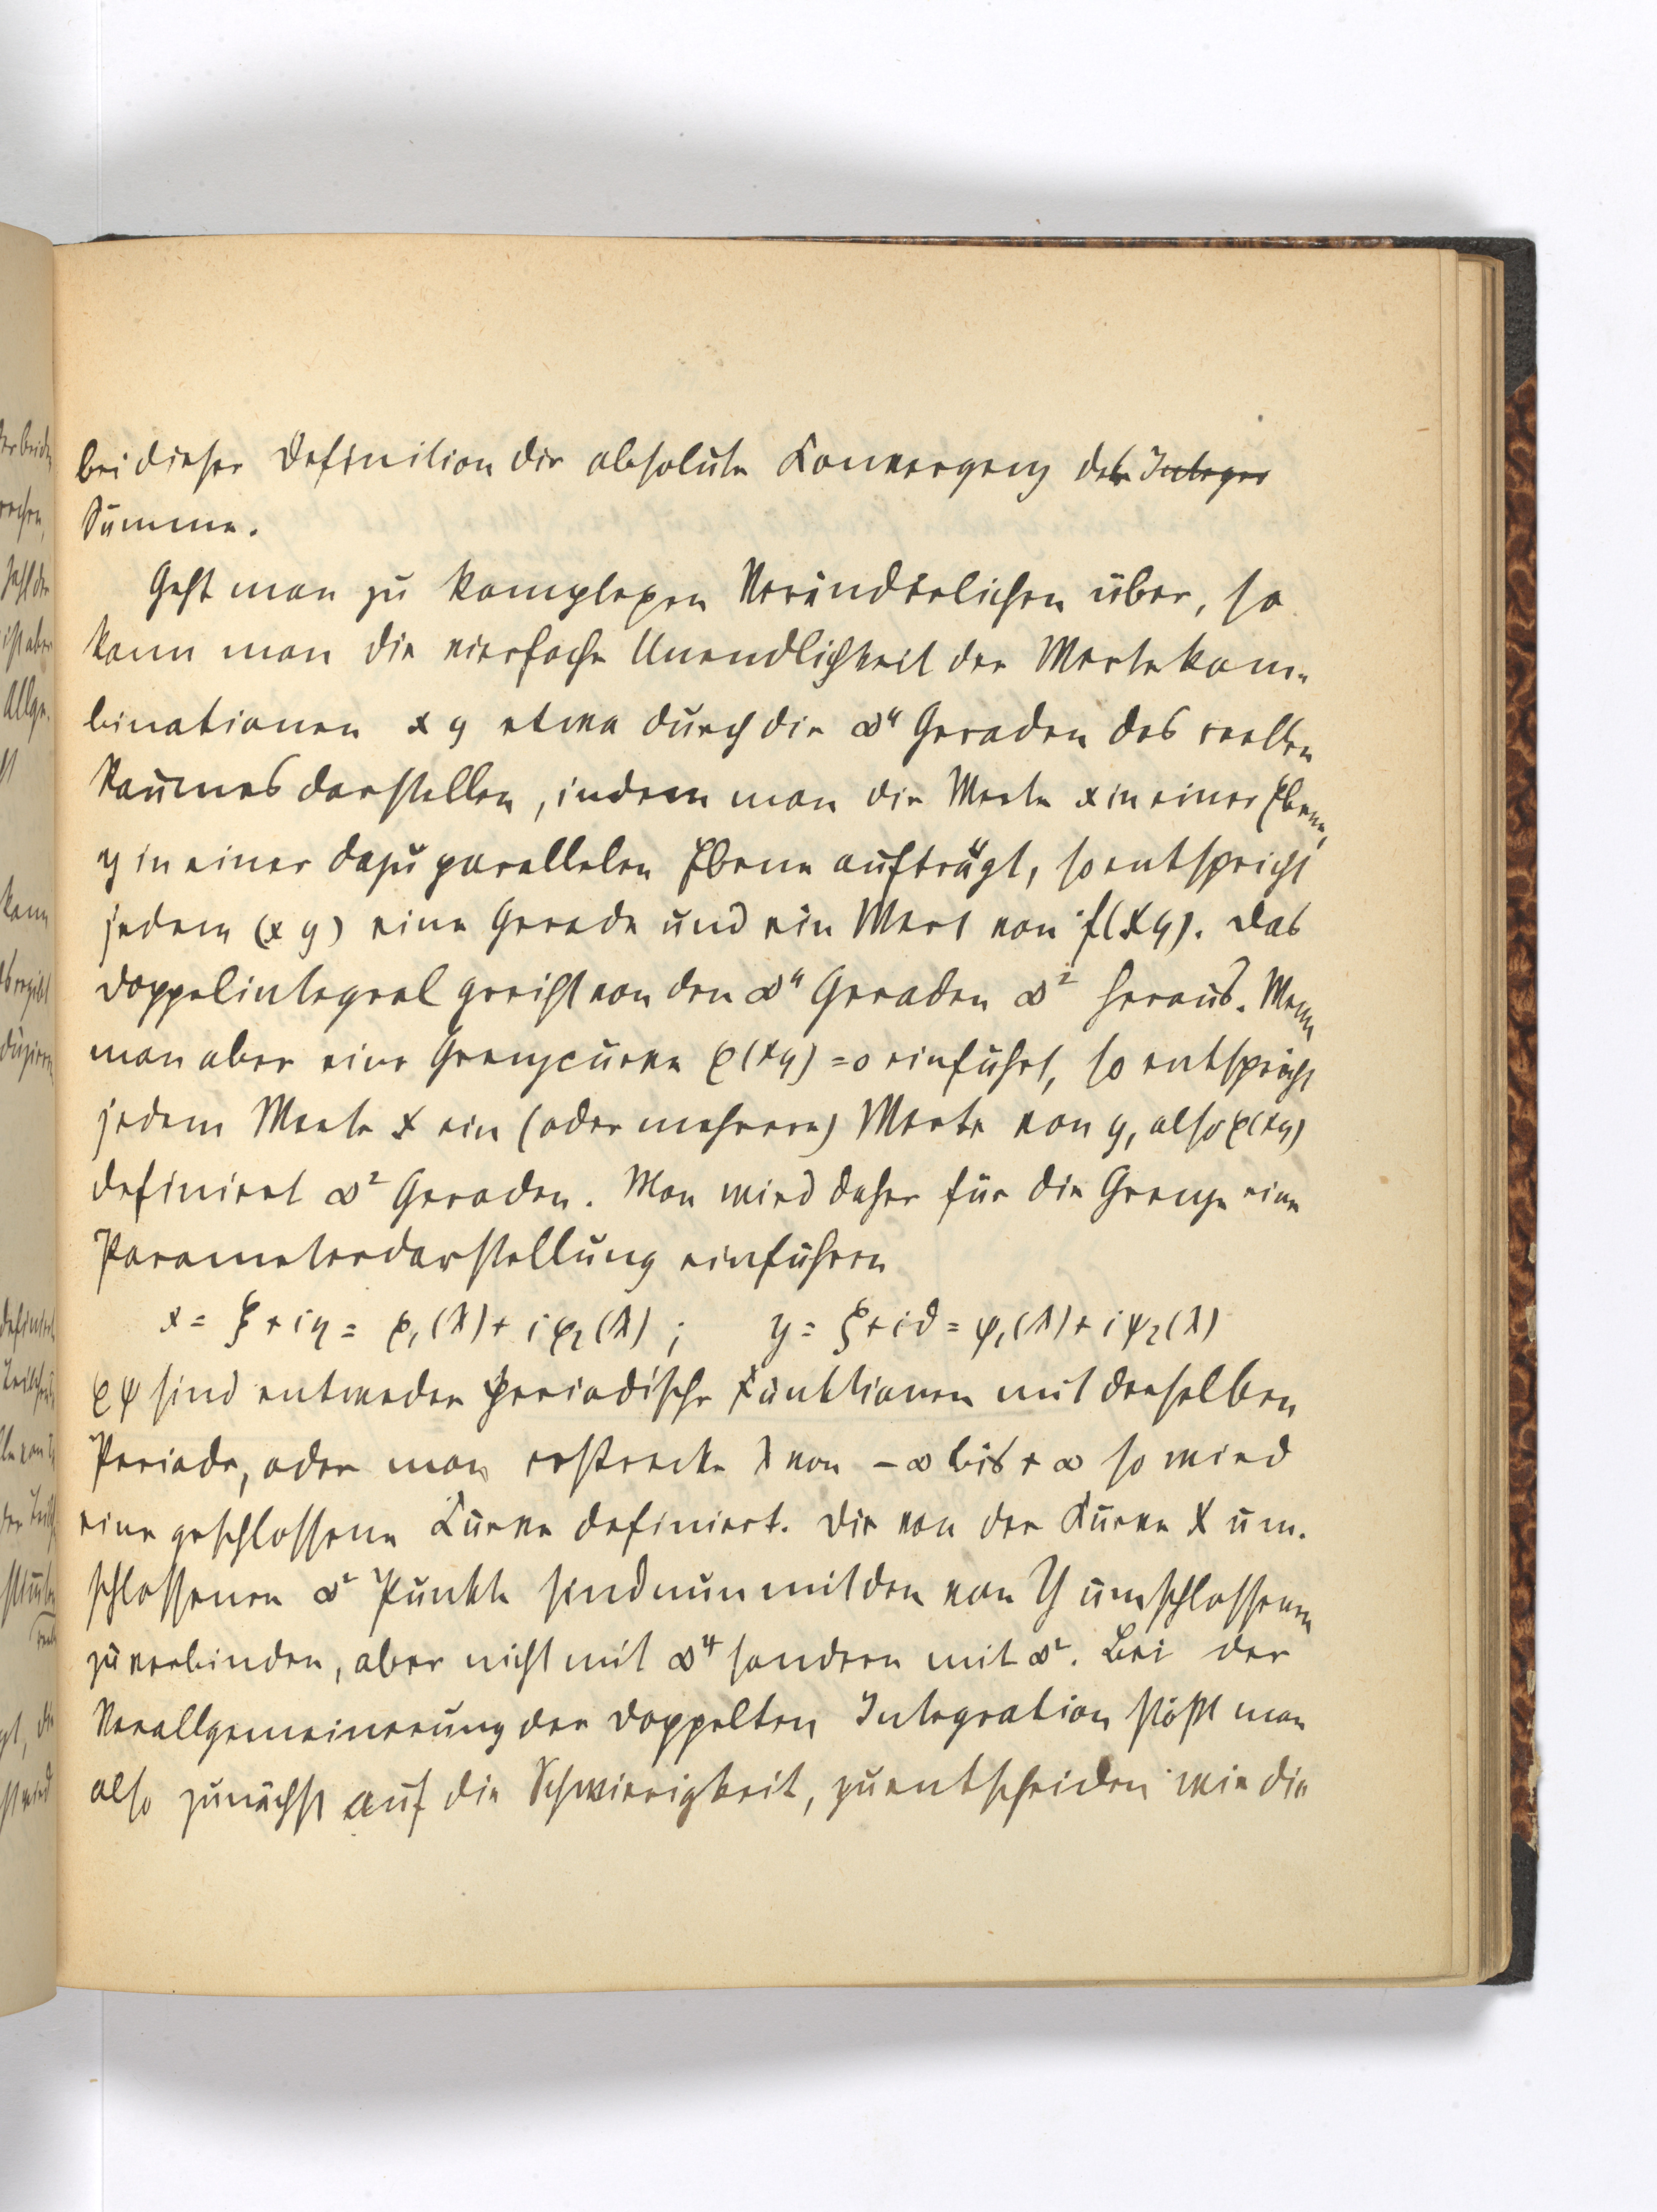 bei dieser Definition die absolute Konvergenz der Integer
Summe.
Geht man zu komplexen Veränderlichen über, so
kann man die vierfache Unendlichkeit der Wertekom-
binationen x y etwa durch die ∞⁴ Geraden des reellen
Raumes darstellen, indem man die Werte x in einer Ebene,
y in einer dazu parallelen Ebene aufträgt, so entspricht
jedem (x y) eine Gerade und ein Wert von f(xy). Das
Doppelintegral greift von den ∞⁴ Geraden ∞² heraus. Wenn
man aber eine Grenzcurve φ(xy)=0 einführt, so entspricht
jedem Werte x ein (oder mehrere) Werte von y, also φ(xy)
definiert ∞² Geraden. Man wird daher für die Grenze eine
Parameterdarstellung einführen
x = ξ + iη = φ₁(λ) + iφ₂(λ) ; y = ζ + iϑ = ψ₁(λ) + iψ₂(λ)
φ ψ sind entweder periodische Funktionen mit derselben
Periode, oder man erstrecke λ von -∞ bis +∞ so wird
eine geschlossene Kurve definiert. Die von der Kurve X um-
schlossenen ∞² Punkte sind nun mit den von Y umschlossenen
zu verbinden, aber nicht mit ∞⁴ sondern mit ∞². Bei der
Verallgemeinerung der doppelten Integration stößt man
also zunächst auf die Schwierigkeit, zu entscheiden wie die